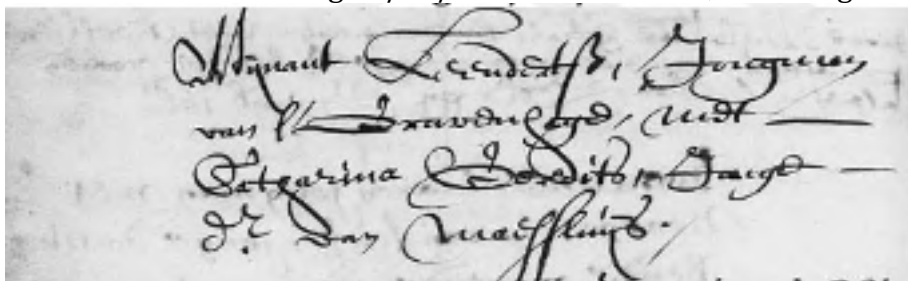 Wijnant Leendertß, Jongman
van s'Gravenhage, met
Catharina Gerrits, Jonge
dr. van Maessluijs.